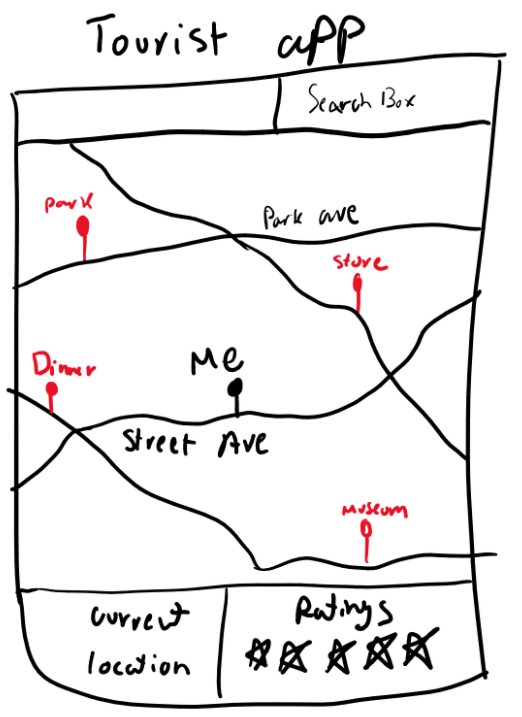 Tourist app
Search Box
Park
Park ave
Store
Dinner
Me
Street Ave
Museum
Current
location
Ratings